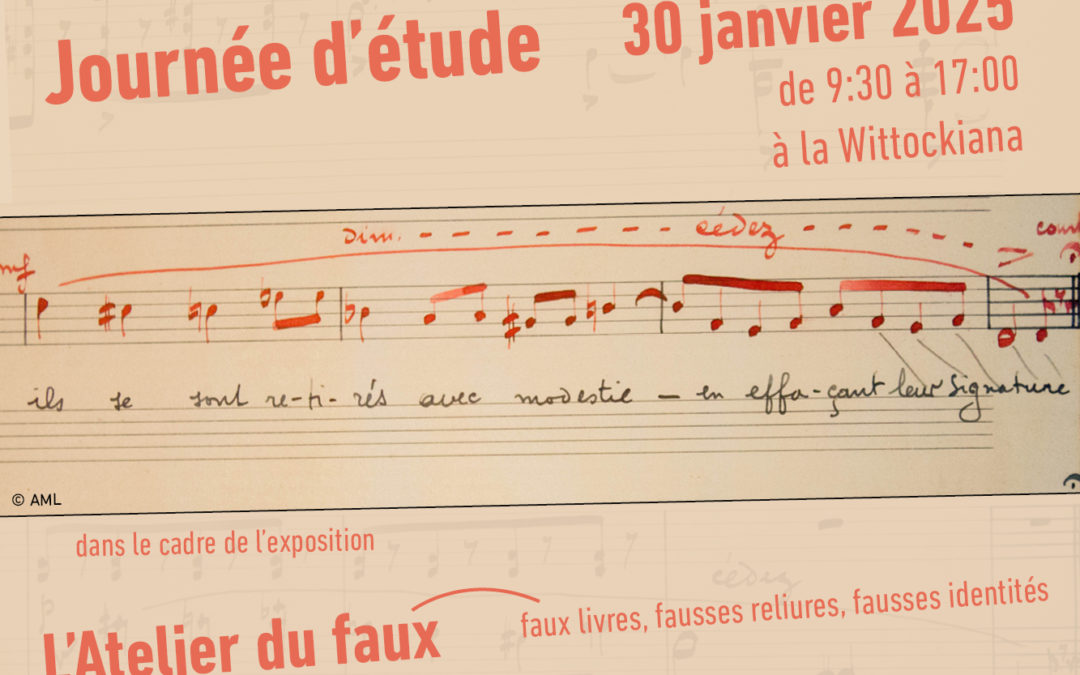 Journée d'étude
30 janvier 2025
de 9:30 à 17:00
à la Wittockiana
dim. cédez
mf
ils se sont re-ti-rés avec modestie – en effa-çant leur signature
© AML
dans le cadre de l'exposition
cédez
L'Atelier du faux
faux livres, fausses reliures, fausses identités